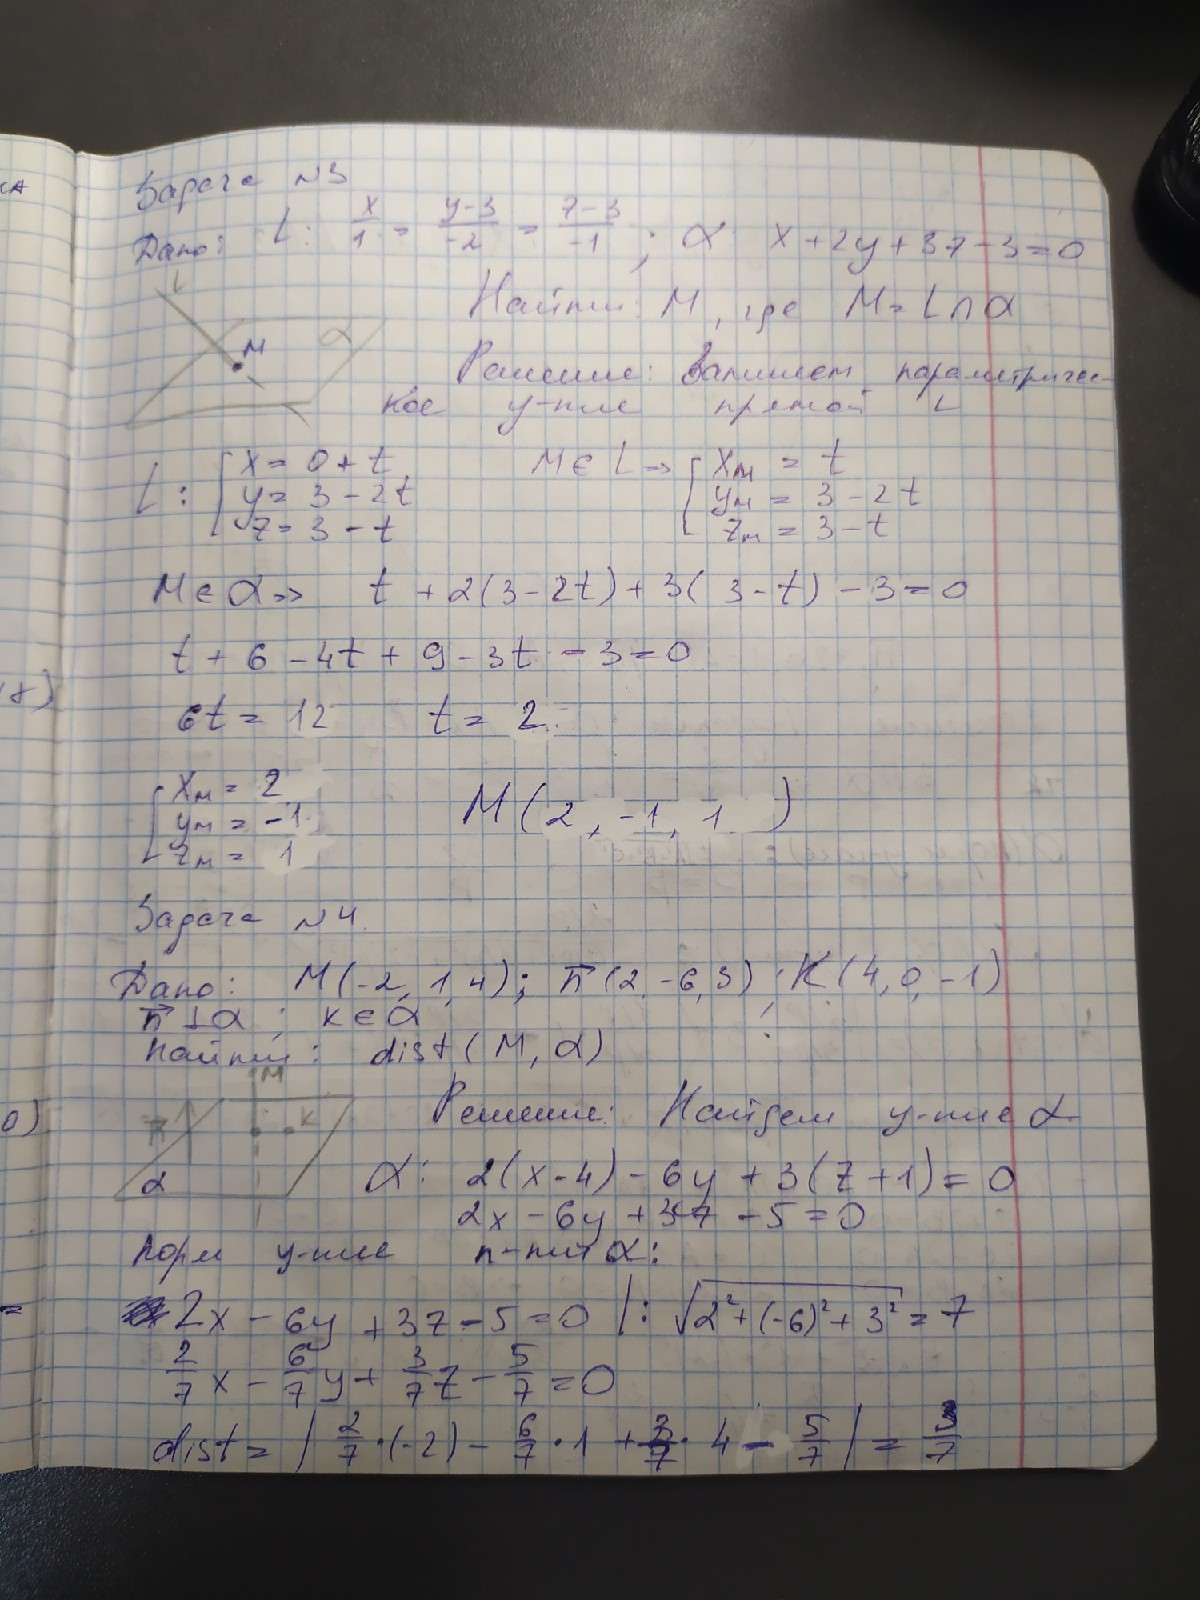 ка
Задача N3
Дано: L: x/1 = y-3/-2 = z-3/-1 ; α: x+2y+3z-3=0
L
Найти: M, где M = L∩α
M
α
Решение: Запишем параметричес-
кое у-ние прямой L
L: { x = 0 + t   M ∈ L → { xм = t
y = 3 - 2t   yм = 3 - 2t
z = 3 - t   zм = 3 - t
M ∈ α => t + 2(3-2t) + 3(3-t) - 3 = 0
t + 6 - 4t + 9 - 3t - 3 = 0
6t = 12   t = 2
{ xм = 2
yм = -1   M(2, -1, 1)
zм = 1
Задача N4.
Дано: M(-2, 1, 4); n⃗(2, -6, 3); K(4, 0, -1)
n⃗ ⊥ α ; K ∈ α
Найти: dist(M, α)
M
n⃗
K
α
Решение: Найдем у-ние α
α: 2(x-4) - 6y + 3(z+1) = 0
2x - 6y + 3z - 5 = 0
Норм у-ние п-ти α:
2x - 6y + 3z - 5 = 0 |: √2² + (-6)² + 3² = 7
2/7 x - 6/7 y + 3/7 z - 5/7 = 0
dist = | 2/7 · (-2) - 6/7 · 1 + 3/7 · 4 - 5/7 | = 3/7